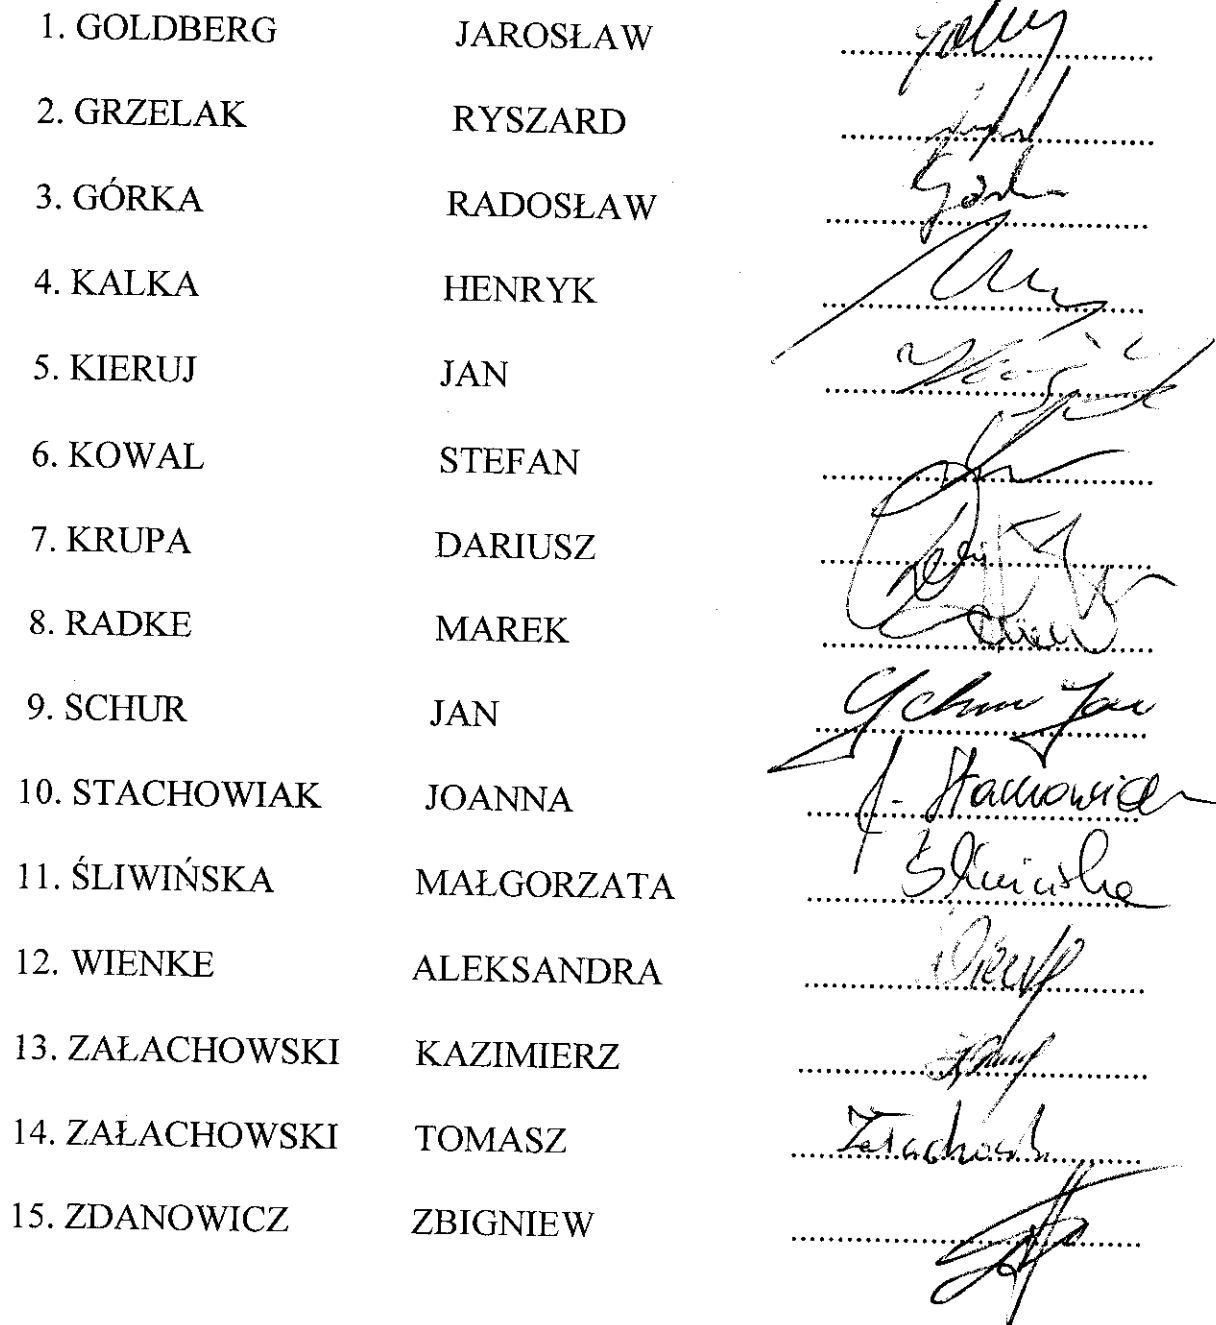 1. GOLDBERG JAROSŁAW
2. GRZELAK RYSZARD
3. GÓRKA RADOSŁAW Górka
4. KALKA HENRYK
5. KIERUJ JAN
6. KOWAL STEFAN
7. KRUPA DARIUSZ
8. RADKE MAREK
9. SCHUR JAN Schur Jan
10. STACHOWIAK JOANNA J. Stachowiak
11. ŚLIWIŃSKA MAŁGORZATA Śliwińska
12. WIENKE ALEKSANDRA
13. ZAŁACHOWSKI KAZIMIERZ
14. ZAŁACHOWSKI TOMASZ
15. ZDANOWICZ ZBIGNIEW